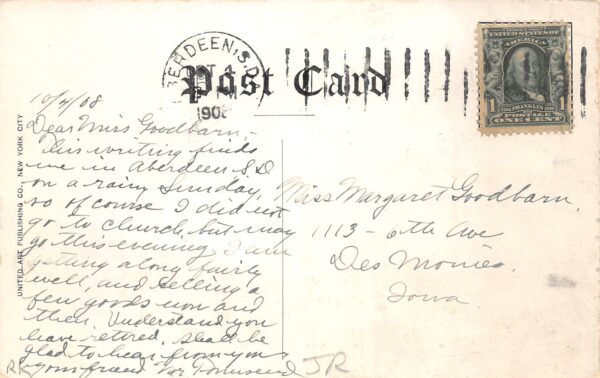 ABERDEEN, S.D.
OCT 4
1908
Post Card
UNITED STATES OF AMERICA
1 1
FRANKLIN
POSTAGE
ONE CENT
UNITED ART PUBLISHING CO., NEW YORK CITY
10/4/08
Dear Miss Goodbarn,-
This writing finds
me in Aberdeen S.D
on a rainy Sunday,
so of course I did not
go to church, but may
go this evening. I am
getting along fairly
well, and selling a
few goods now and
then. Understand you
have retired. Shall be
glad to hear from you
your friend Townsend
Miss Margaret Goodbarn,
1113 - 6th Ave
Des Moines,
Iowa
RK
JR